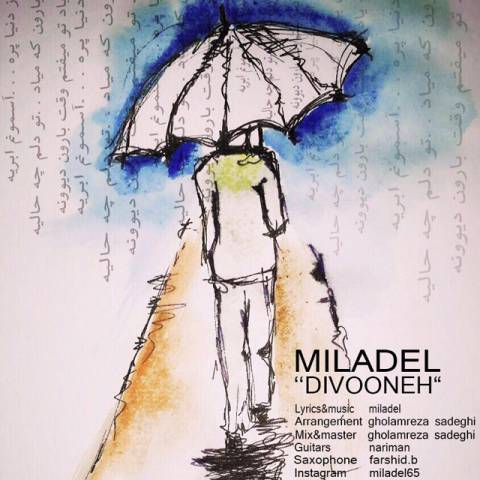 دنیا پره ...آسمونم ابریه
بارون که میاد ..تو دلم چه حالیه
یاد تو میفتم وقت بارون دیوونه
آسمونم ابریه
تو دلم چه حالیه
بارون دیوونه
ابریه
حالیه
دیوونه
آسمونم ابریه
میاد ..تو دلم چه حالیه
تو میفتم وقت بارون دیوونه
MILADEL
‘‘DIVOONEH“
Lyrics&music miladel
Arrangement gholamreza sadeghi
Mix&master gholamreza sadeghi
Guitars nariman
Saxophone farshid.b
Instagram miladel65